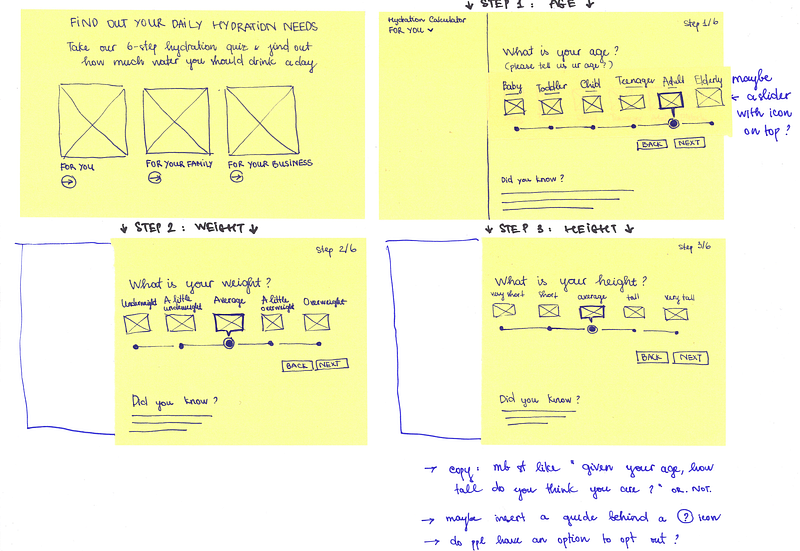 FIND OUT YOUR DAILY HYDRATION NEEDS
Take our 6-step hydration quiz & find out
how much water you should drink a day
FOR YOU
FOR YOUR FAMILY
FOR YOUR BUSINESS
↓ STEP 1 : AGE ↓
Hydration Calculator
FOR YOU
Step 1/6
What is your age ?
(please tell us ur age ?)
Baby Toddler Child Teenager Adult Elderly
BACK NEXT
Did you know ?
maybe
← a slider
with icon
on top ?
↓ STEP 2 : WEIGHT ↓
Step 2/6
What is your weight ?
Underweight A little underweight Average A little overweight Overweight
BACK NEXT
Did you know ?
↓ STEP 3 : HEIGHT ↓
Step 3/6
What is your height ?
very short short average tall very tall
BACK NEXT
Did you know ?
→ copy : mb st like " given your age, how
tall do you think you are ? " OR. NOT.
→ maybe insert a guide behind a ? icon
→ do ppl have an option to opt out ?